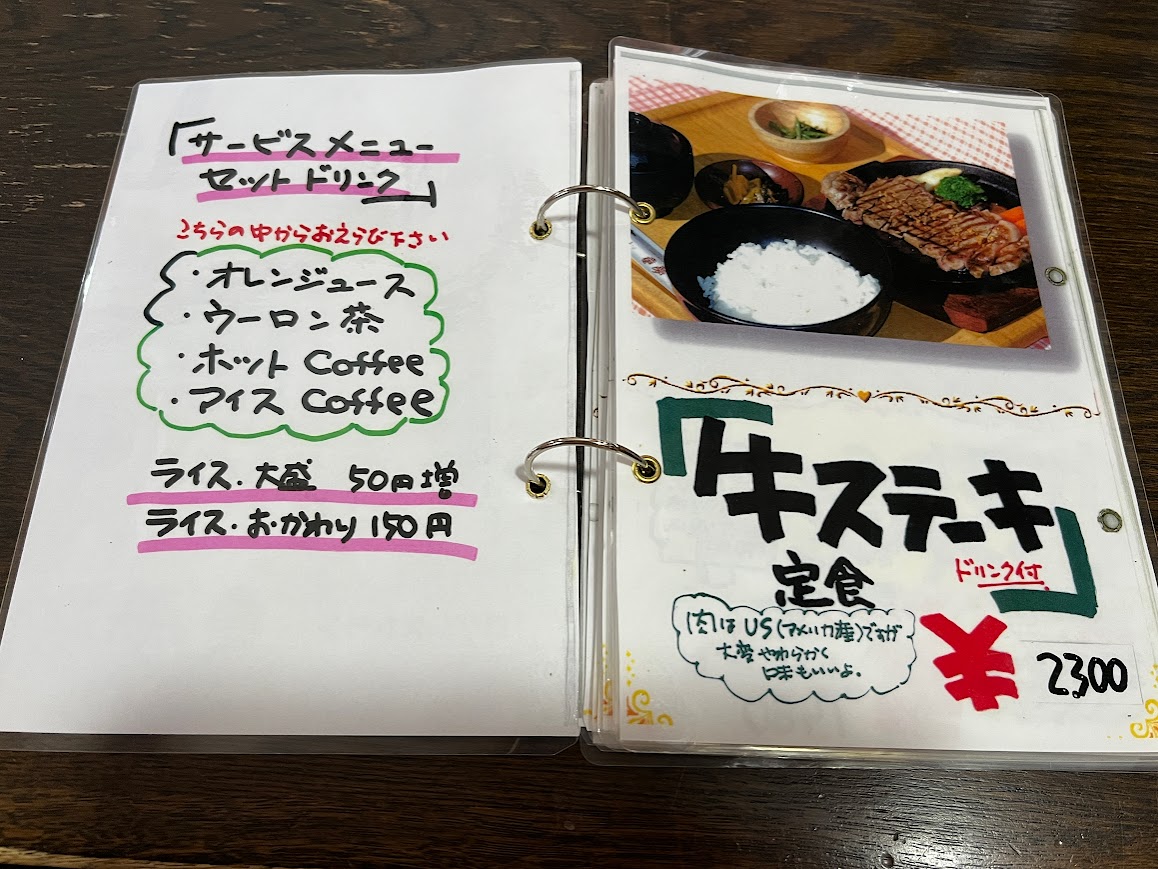 「サービスメニュー
セットドリンク」
こちらの中からおえらび下さい
・オレンジュース
・ウーロン茶
・ホット Coffee
・アイス Coffee
ライス・大盛 50円増
ライス・おかわり 150円
「牛ステーキ」
定食
ドリンク付
肉はUS(アメリカ産)ですが
大変やわらかく
味もいいよ.
¥ 2300